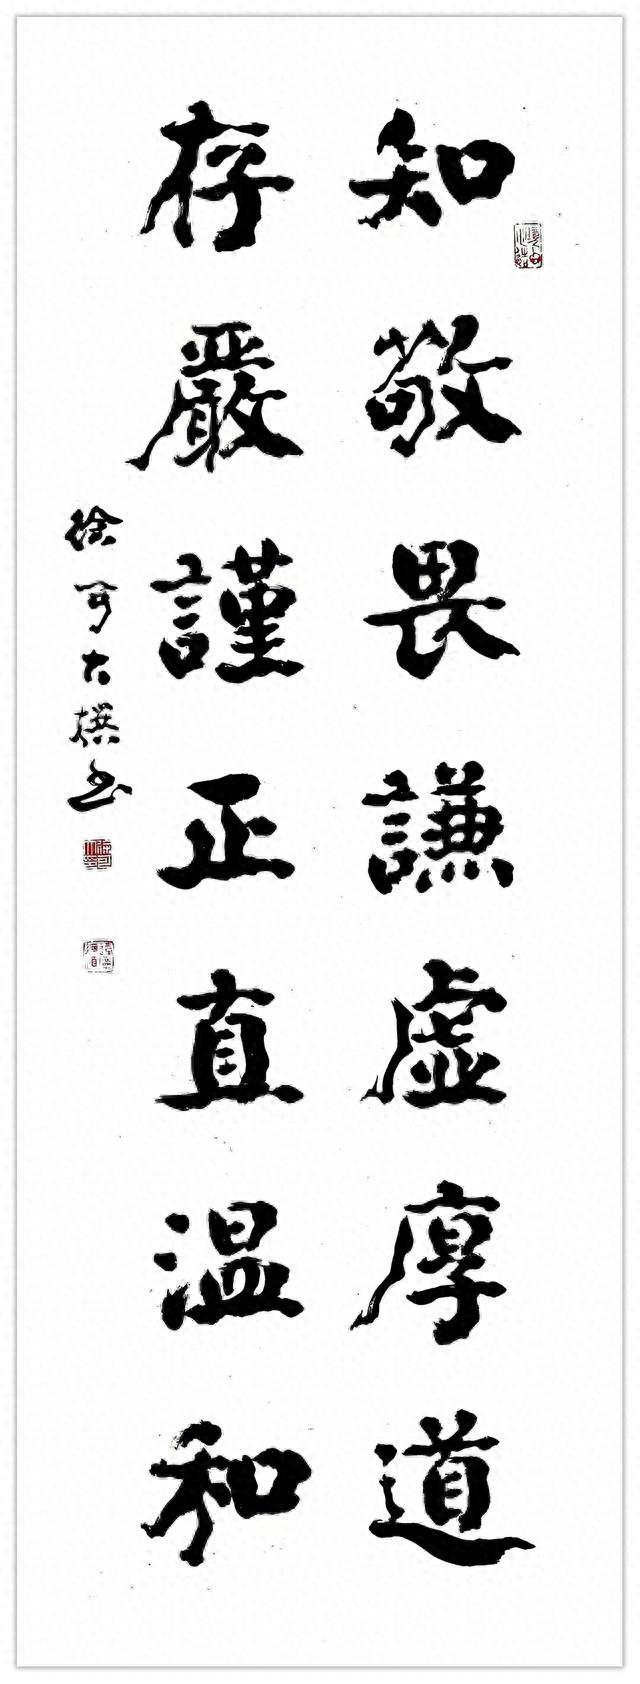 知敬畏謙虛厚道
存嚴謹正直温和
徐可大撰书